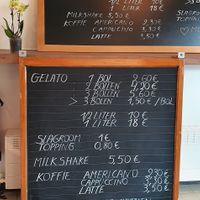 1/2 LITER 10€
1 LITER 18€
MILKSHAKE 5,50€
KOFFIE AMERICANO 2,30€
CAPPUCCINO 3,30€
LATTE 3,50€
SLAGROOM
TOPPING
GELATO 1 BOL 2,60€
2 BOLLEN 4,30€
3 BOLLEN 5,60€
> 3 BOLLEN 1,50€/BOL
1/2 LITER 10€
1 LITER 18€
SLAGROOM 1€
TOPPING 0,80€
MILKSHAKE 5,50€
KOFFIE AMERICANO 2,30€
CAPPUCCINO 3,30€
LATTE 3,50€